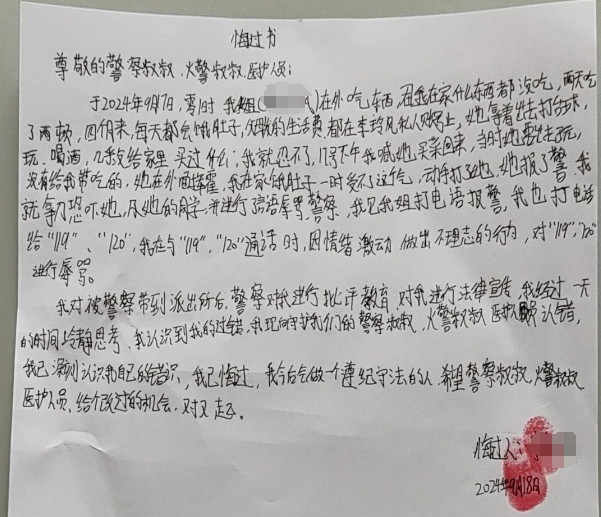 悔过书
尊敬的警察叔叔、火警叔叔、医护人员:
于2024年9月17日,零时 我姐( )在外吃东西,因我在家什么东西都没吃,两天吃
了两顿,四个月来,每天都会饿肚子,父亲的生活费都在李玲凤私人账号上,她拿着出去打台球,
玩,喝酒,几乎没给家里买过什么;我就忍不了,17号下午我喊她买菜回来,当时她要出去玩,
没有给我带吃的,她在外面挥霍,我在家饿肚子一时受不了这个气,动手打了她,她报了警,我
就拿刀恐吓她,及她的同学,并进行言语辱骂,警察,我见我姐打电话报警,我也打电话
给"119"、"120",我在与"119","120"通话时,因情绪激动 做出不理志的行为,对"119","120"
进行辱骂。
我对被警察带到派出所后,警察对我进行批评教育,对我进行法律宣传,我经过一天
的时间冷静思考,我认识到我的过错,我现向守护我们的警察叔叔,火警叔叔 医护人员 认错,
我已深刻认识我自己的错识,我已悔过,我今后会做一个遵纪守法的人,希望警察叔叔,火警叔叔
医护人员,给个改过的机会,对不起。
悔过人:
2024年9月18日